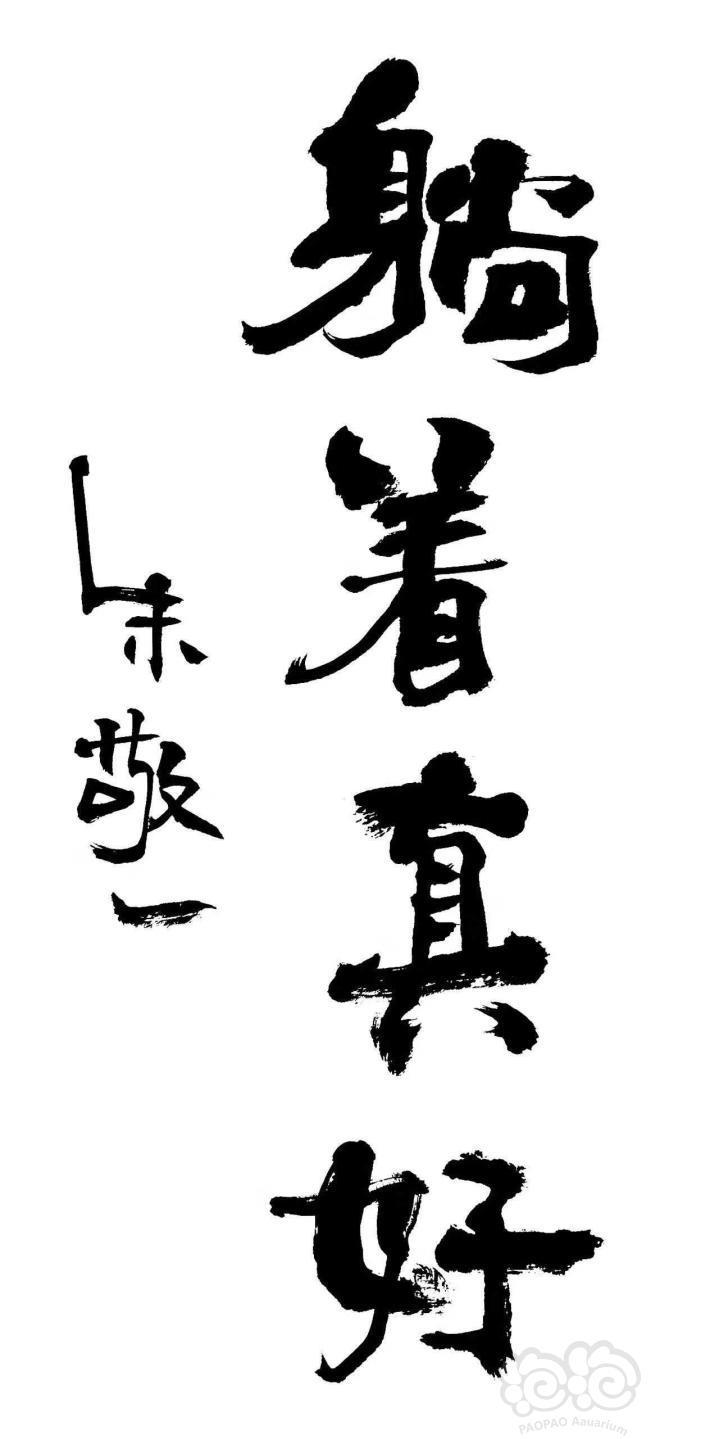 躺着真好
朱敬一
PAOPAO Aauarium